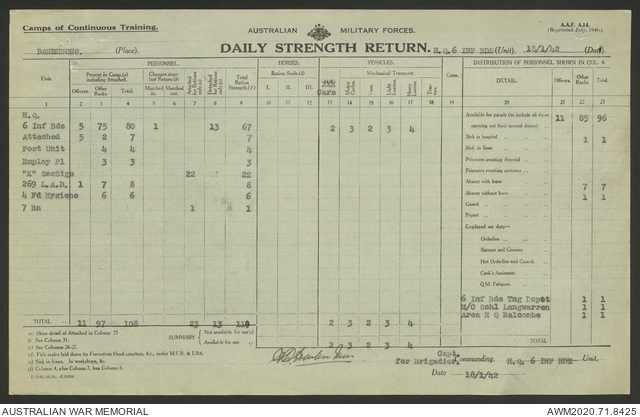 Camps of Continuous Training.
AUSTRALIAN MILITARY FORCES.
A.A.F. A.14.
(Registered July, 1940.)
DANDENONG. (Place).
DAILY STRENGTH RETURN.
H.Q. 6 INF BDE (Unit). 18/1/42 (Date)
PERSONNEL.
HORSES.
VEHICLES.
DISTRIBUTION OF PERSONNEL SHOWN IN COL. 4.
Unit.
Present in Camp (a) including Attached.
Changes since last Return (b)
Attached for Rations only (c)
Detached for Rations only (d)
Total Ration Strength (f)
Ration Scale (d)
Mechanical Transport.
Cars
DETAIL.
Officers.
Other Ranks.
Total.
Marched In.
Marched Out.
I. II. III.
Motor Cycles.
Vans.
Light Lorries.
Heavy Lorries.
Trac-tors.
Officers.
Other Ranks.
Total.
1 2 3 4 5 6 7 8 9 10 11 12 13 14 15 16 17 18 19 20 21 22 23
H.Q.
6 Inf Bde 5 75 80 1 13 67 2 3 2 3 4
Attached 5 2 7 7
Post Unit 4 4 4
Employ Pl 3 3 3
"K" SecSigs 22 22
269 L.A.D. 1 7 8 8
4 Fd Hygiene 6 6 6
7 Bn 1 1
Available for parade (to include all those carrying out their normal duties) 11 85 96
Sick in hospital 1 1
Sick in lines
Prisoners awaiting disposal
Prisoners awaiting sentence
Absent with leave 7 7
Absent without leave 1 1
Guard
Piquet
Employed on duty—
Orderlies
Batmen and Grooms
Hut Orderlies and Guards
Cook's Assistants
Q.M. Fatigues
6 Inf Bde Tng Depot 1 1
M/G Schl Langwarren 1 1
Area H Q Balcombe 1 1
TOTAL 11 97 108 23 13 118 2 3 2 3 4
(a) Show detail of Attached in Column 25
(b) See Column 31.
(c) See Columns 26-27.
(e) Sick in lines, In workshops, &c.
(f) Column 4, plus Column 7, less Column 8.
SUMMARY
Not available for use
Available for use 2 3 2 3 4
Capt.
for Brigadier Commanding. H.Q. 6 INF BDE Unit.
Date 18/1/42
AUSTRALIAN WAR MEMORIAL
AWM2020.71.8425